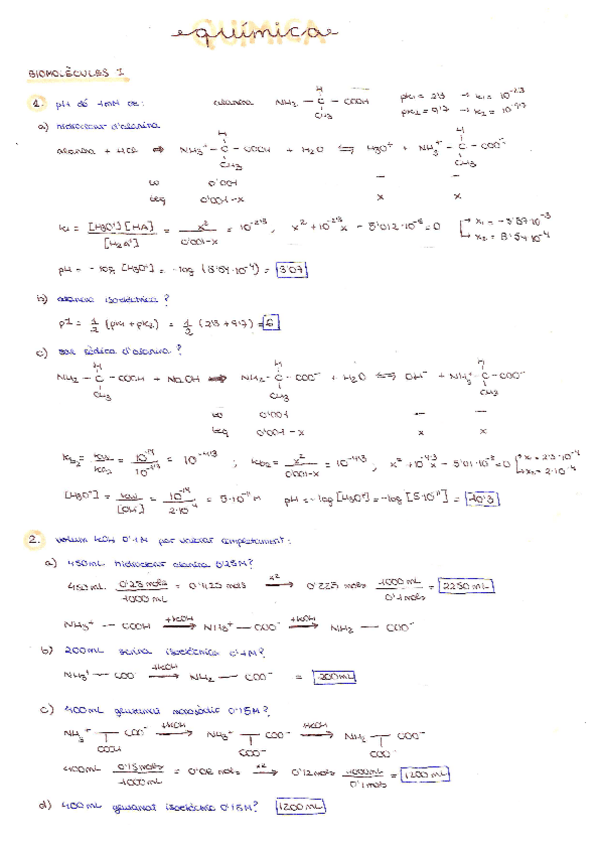 química
BIOMOLÈCULES I
1. pH de 1mM de: alanina NH₂ — C — COOH pK₁ = 2'3 → K₁ = 10^-2'3
H CH₃ pK₂ = 9'7 → K₂ = 10^-9'7
a) hidroclorur d'alanina
alanina + HCl ⇒ NH₃⁺ — C — COOH + H₂O ⇌ H₃O⁺ + NH₃⁺ — C — COO⁻
H CH₃ H CH₃
0'001 — —
0'001-x x x
K₁ = [H₃O⁺][HA] / [H₂A⁺] = x² / 0'001-x = 10^-2'3 ; x² + 10^-2'3 x - 5'012·10^-6 = 0
pH = -log [H₃O⁺] = -log (8'54·10^-4) = 3'07
b) alanina isoelèctrica?
pI = 1/2 (pK₁ + pK₂) = 1/2 (2'3 + 9'7) = 6
c) sal sòdica d'alanina?
NH₂ — C — COOH + NaOH ⇒ NH₂ — C — COO⁻ + H₂O ⇌ OH⁻ + NH₃⁺ — C — COO⁻
H CH₃ H CH₃ H CH₃
0'001 — —
0'001-x x x
= 10^-14 / 10^-9'7 = 10^-4'3 ; = x² / 0'001-x = 10^-4'3 ;
[H₃O⁺] = Kw / [OH⁻] = 10^-14 / 2·10^-4 = 5·10^-11 M pH = -log [H₃O⁺] = -log [5·10^-11] = 10'3
2. volum KOH 0'1M per valorar completament:
a) 450mL hidroclorur alanina 0'25M?
450mL · 0'25 mols / 1000 mL = mols →x2 0'225 mols · 1000 mL / 0'1 mols = 2250 mL
NH₃⁺ — COOH →+KOH NH₃⁺ — COO⁻ →+KOH NH₂ — COO⁻
b) 200mL isoelèctrica 0'1M?
NH₃⁺ — COO⁻ →+KOH NH₂ — COO⁻ = 200mL
c) 400mL glutamat monosòdic 0'15M?
NH₃⁺ COO⁻ →+KOH NH₃⁺ COO⁻ →+KOH NH₂ COO⁻
COOH COO⁻ COO⁻
400mL 0'15 mols / 1000mL = 0'06 mols →x2 0'12 mols 1000mL / 0'1 mols = 1200 mL
d) 400 mL glutamat isoelèctric 0'15M? 1200mL